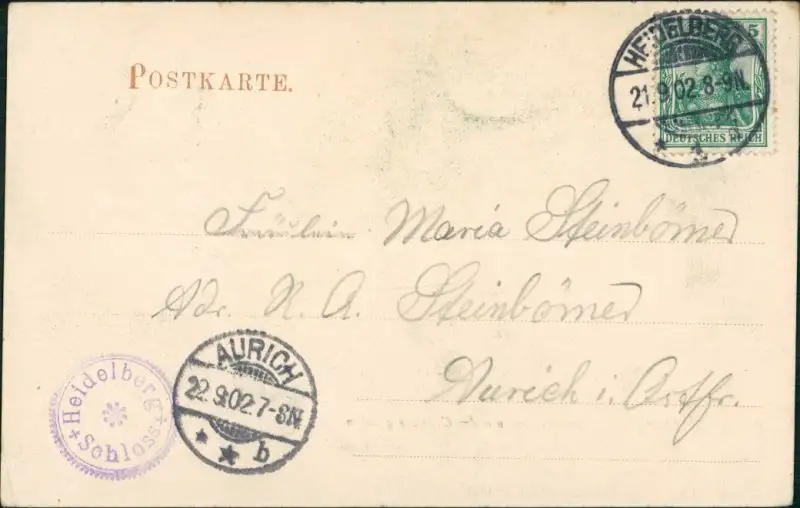 POSTKARTE.
HEIDELBERG
21.9.02.8-9N.
5
DEUTSCHES REICH
Fräulein Maria Steinbömer
Adr. H. A. Steinbömer
Aurich i. Ostfr.
AURICH
22.9.02.7-8N
* * b
+ Heidelberg +
Schloss